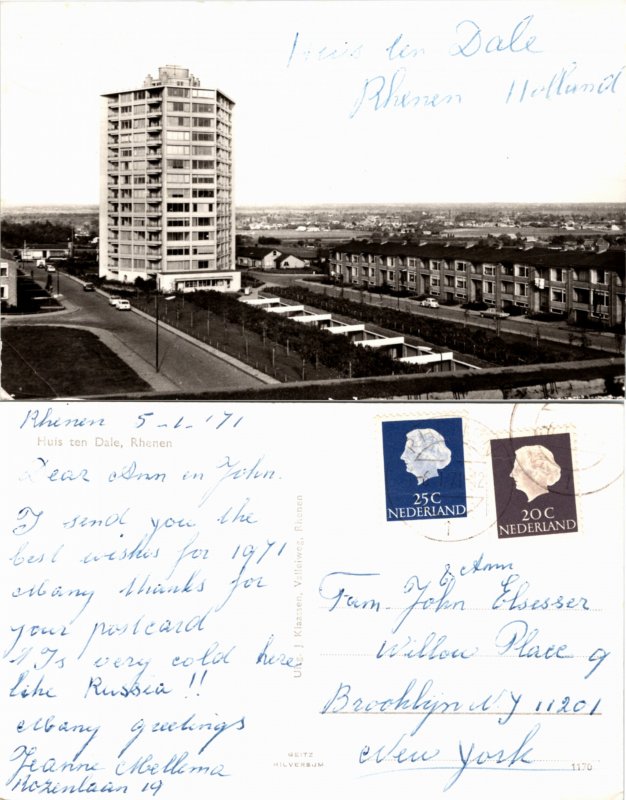 Huis ten Dale
Rhenen Holland
Rhenen 5-1-'71
Huis ten Dale, Rhenen
Dear Ann en John.
I send you the
best wishes for 1971
Many thanks for
your postcard
't Is very cold here
like Russia !!
Many greetings
Jeanne Mellema
Rozenlaan 19
Uitg. J Klaassen, Valleiweg, Rhenen
GEITZ
HILVERSUM
25 C
NEDERLAND
20 C
NEDERLAND
& Ann
Fam. John Elsesser
Willow Place 9
Brooklijn NY 11201
New York
1170